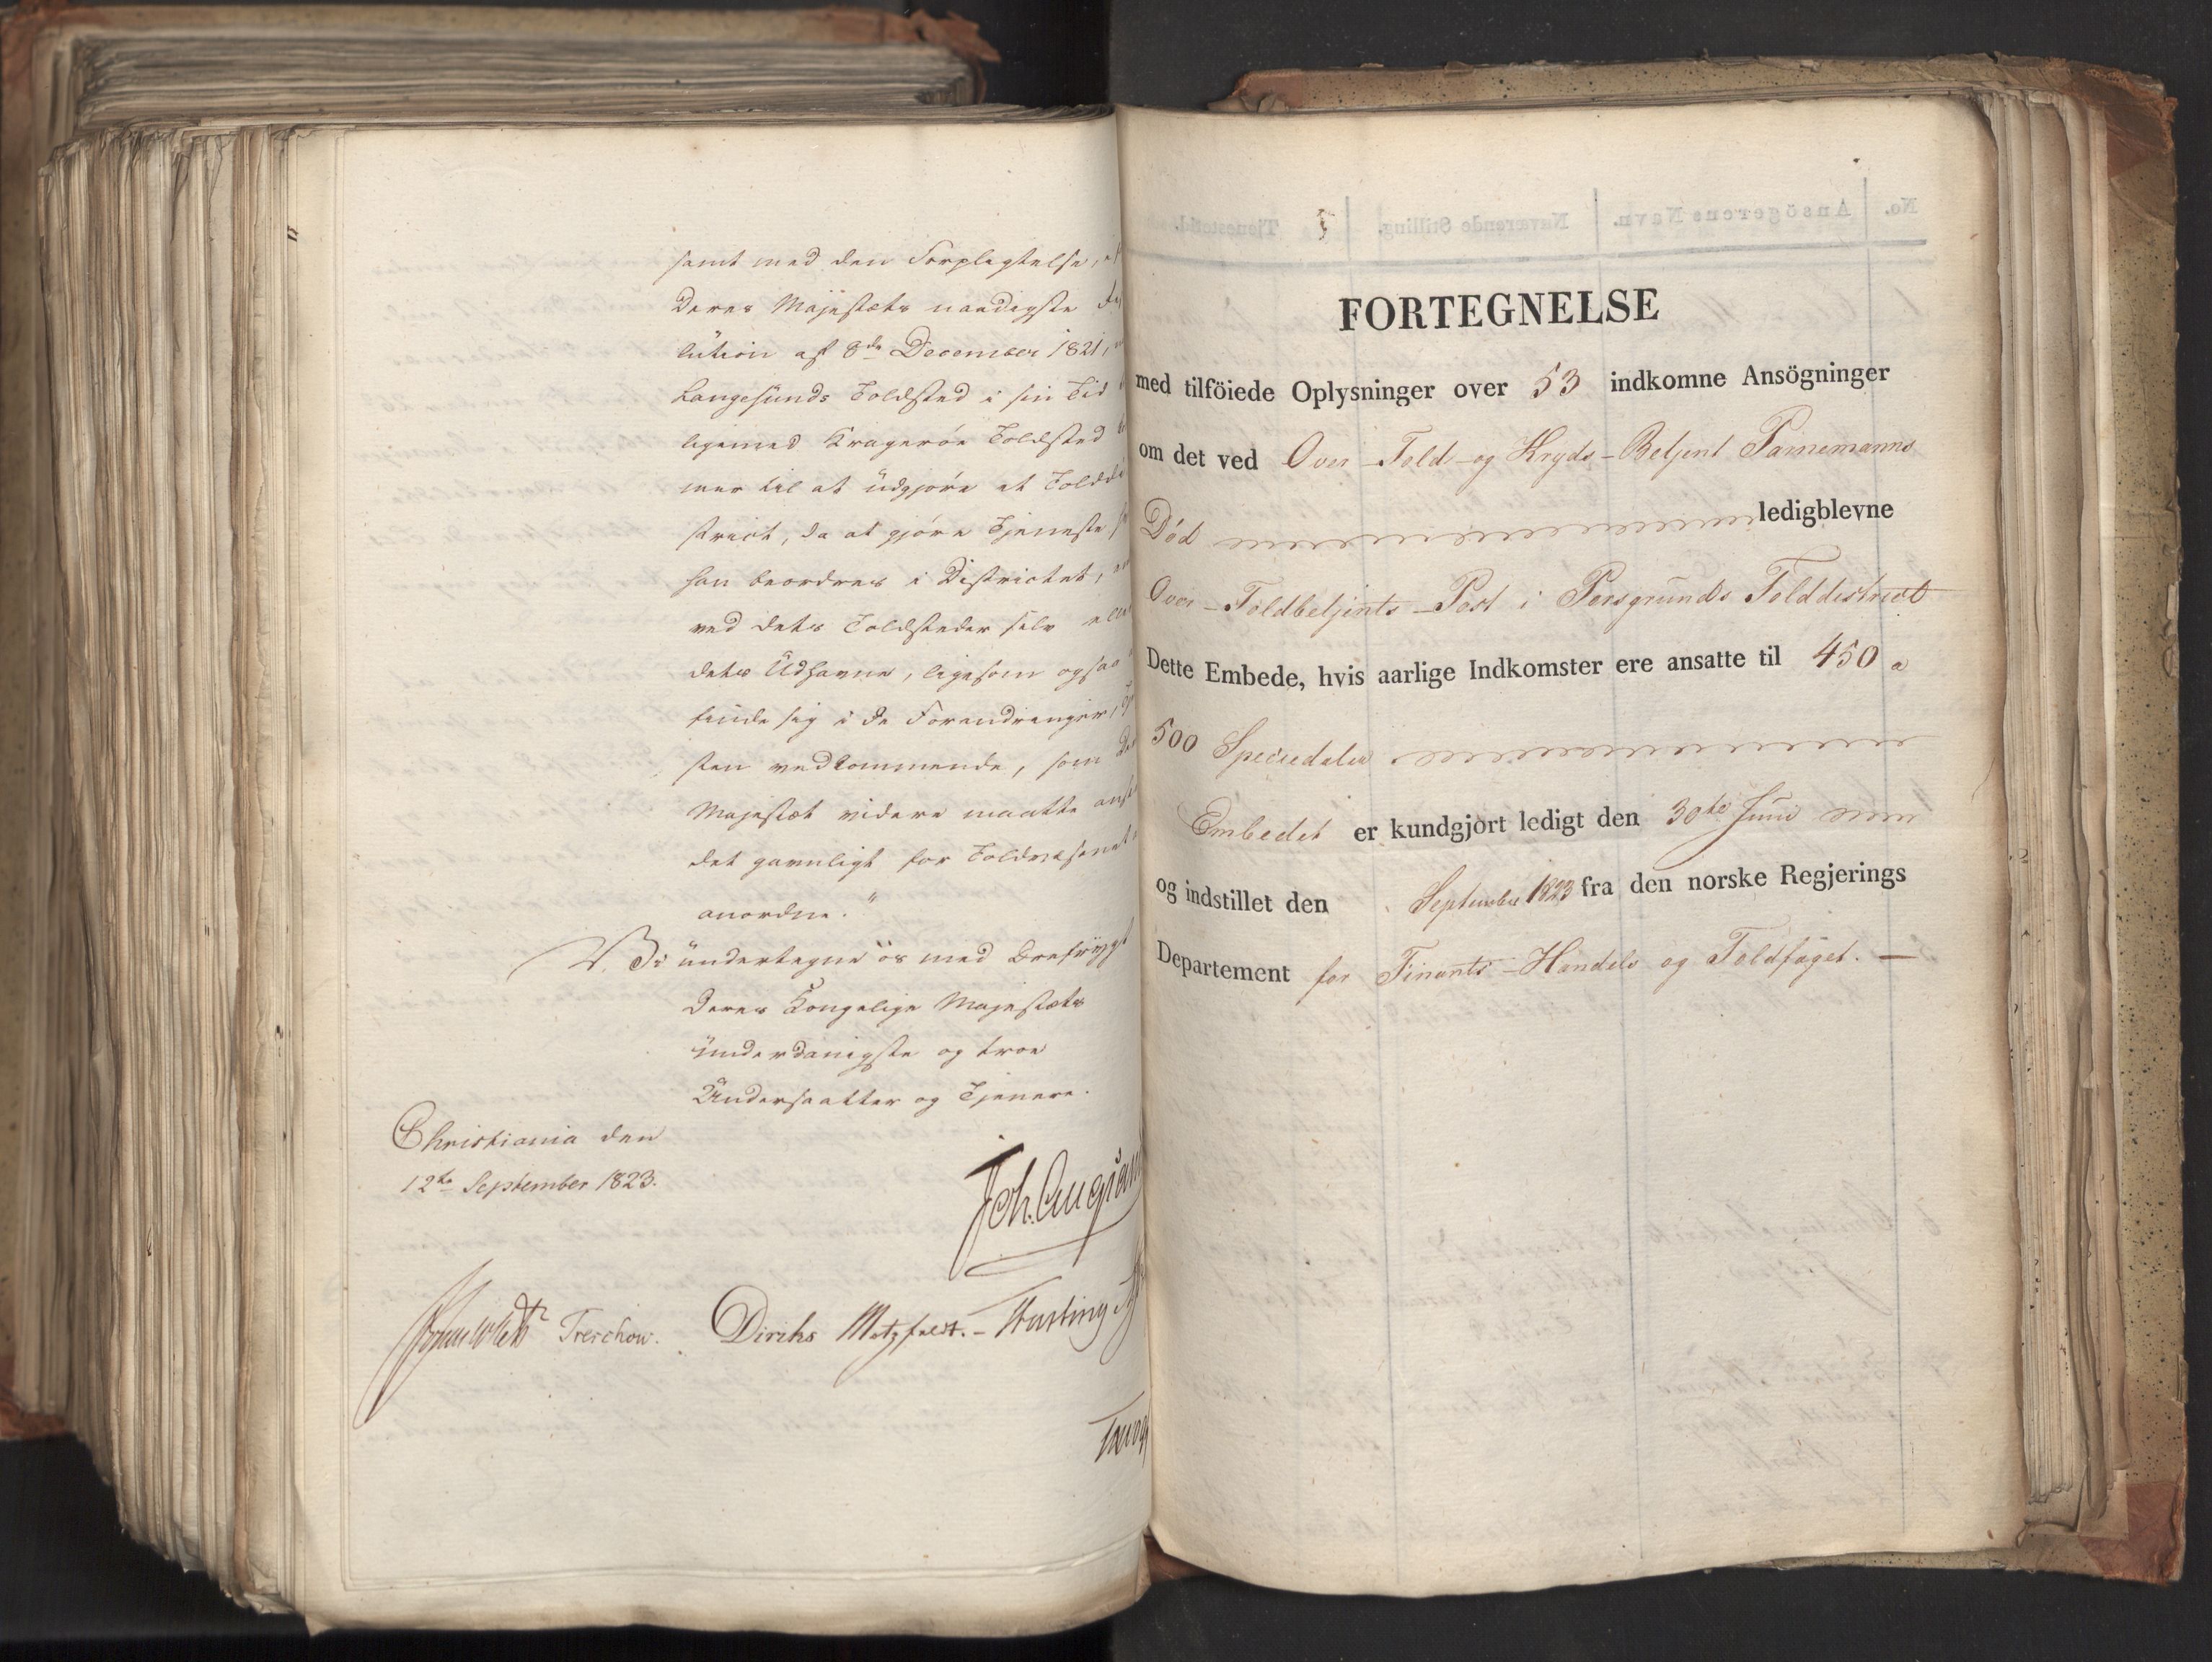 samt med den Forpligtelse,
Deres Majestæts naadigste
lution af 8de December 1821,
Langesunds Toldsted i sin Tid
ligemed Kragerøe Toldsted
mer til at udgjøre et Toldd
strict, da at gjøre Tjeneste
han beordres i Districtet,
ved dets Toldsteder selv eller
dets Udhavne, ligesom ogsaa
finde sig i de Forandringer,
sten vedkommende, som
Majestæt videre maatte anse
det gavnligt for Toldvæsenet
anordne."
Vi undertegne os med Ærefrygt
Deres Kongelige Majestæts
underdanigste og troe
Undersaatter og Tjenere.
Christiania den
12te September 1823.
Joh. Aug
Treschow. Diriks Motzfeldt.
FORTEGNELSE
med tilföiede Oplysninger over 53 indkomne Ansögninger
om det ved Over-Told-og Kryds-Betjent Parnemanns
Död ledigblevne
Over-Toldbetjents-Post i Porsgrunds Tolddistrict
Dette Embede, hvis aarlige Indkomster ere ansatte til 450 a
500 Speciedaler
Embedet er kundgjort ledigt den 30te Juni
og indstillet den September 1823 fra den norske Regjerings
Departement for Finants-Handels og Toldfaget. —
No. Ansögerens Navn. Nærværende Stilling. Tjenestetid.